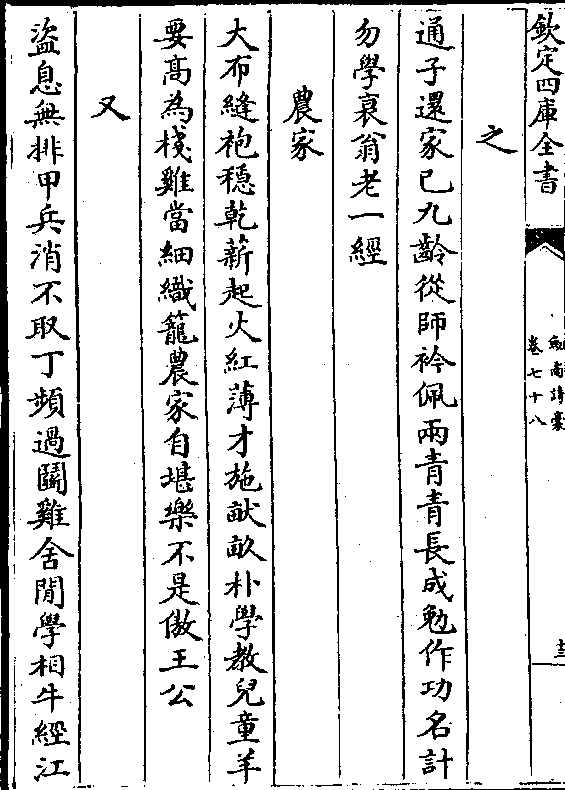 欽定四庫全書
劍南詩藁
卷七十八
十三
之
通子還家已九齡從師衿佩兩青青長成勉作功名計
勿學衰翁老一經
農家
大布縫袍穩乾薪起火紅薄才施畎畝朴學教兒童羊
要高為棧雞當細織籠農家自堪樂不是傲王公
又
盜息無排甲兵消不取丁頻過鬬雞舍閒學相牛經江